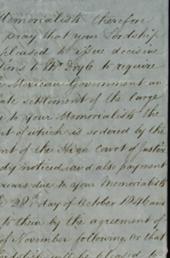 Memorialists therefore
pray that your Lordship
pleased to issue decisive
tions to Mr Doyle to require
Mexican Government an
ate settlement of the large
to your Memorialists the
t of which is secured by the
nt of the High Court of Justice
dy noticed and also payment
rears due to your Memorialists
28th day of October 1846 and
to them by the agreement of
of November following Or that
Lordship will be pleased to